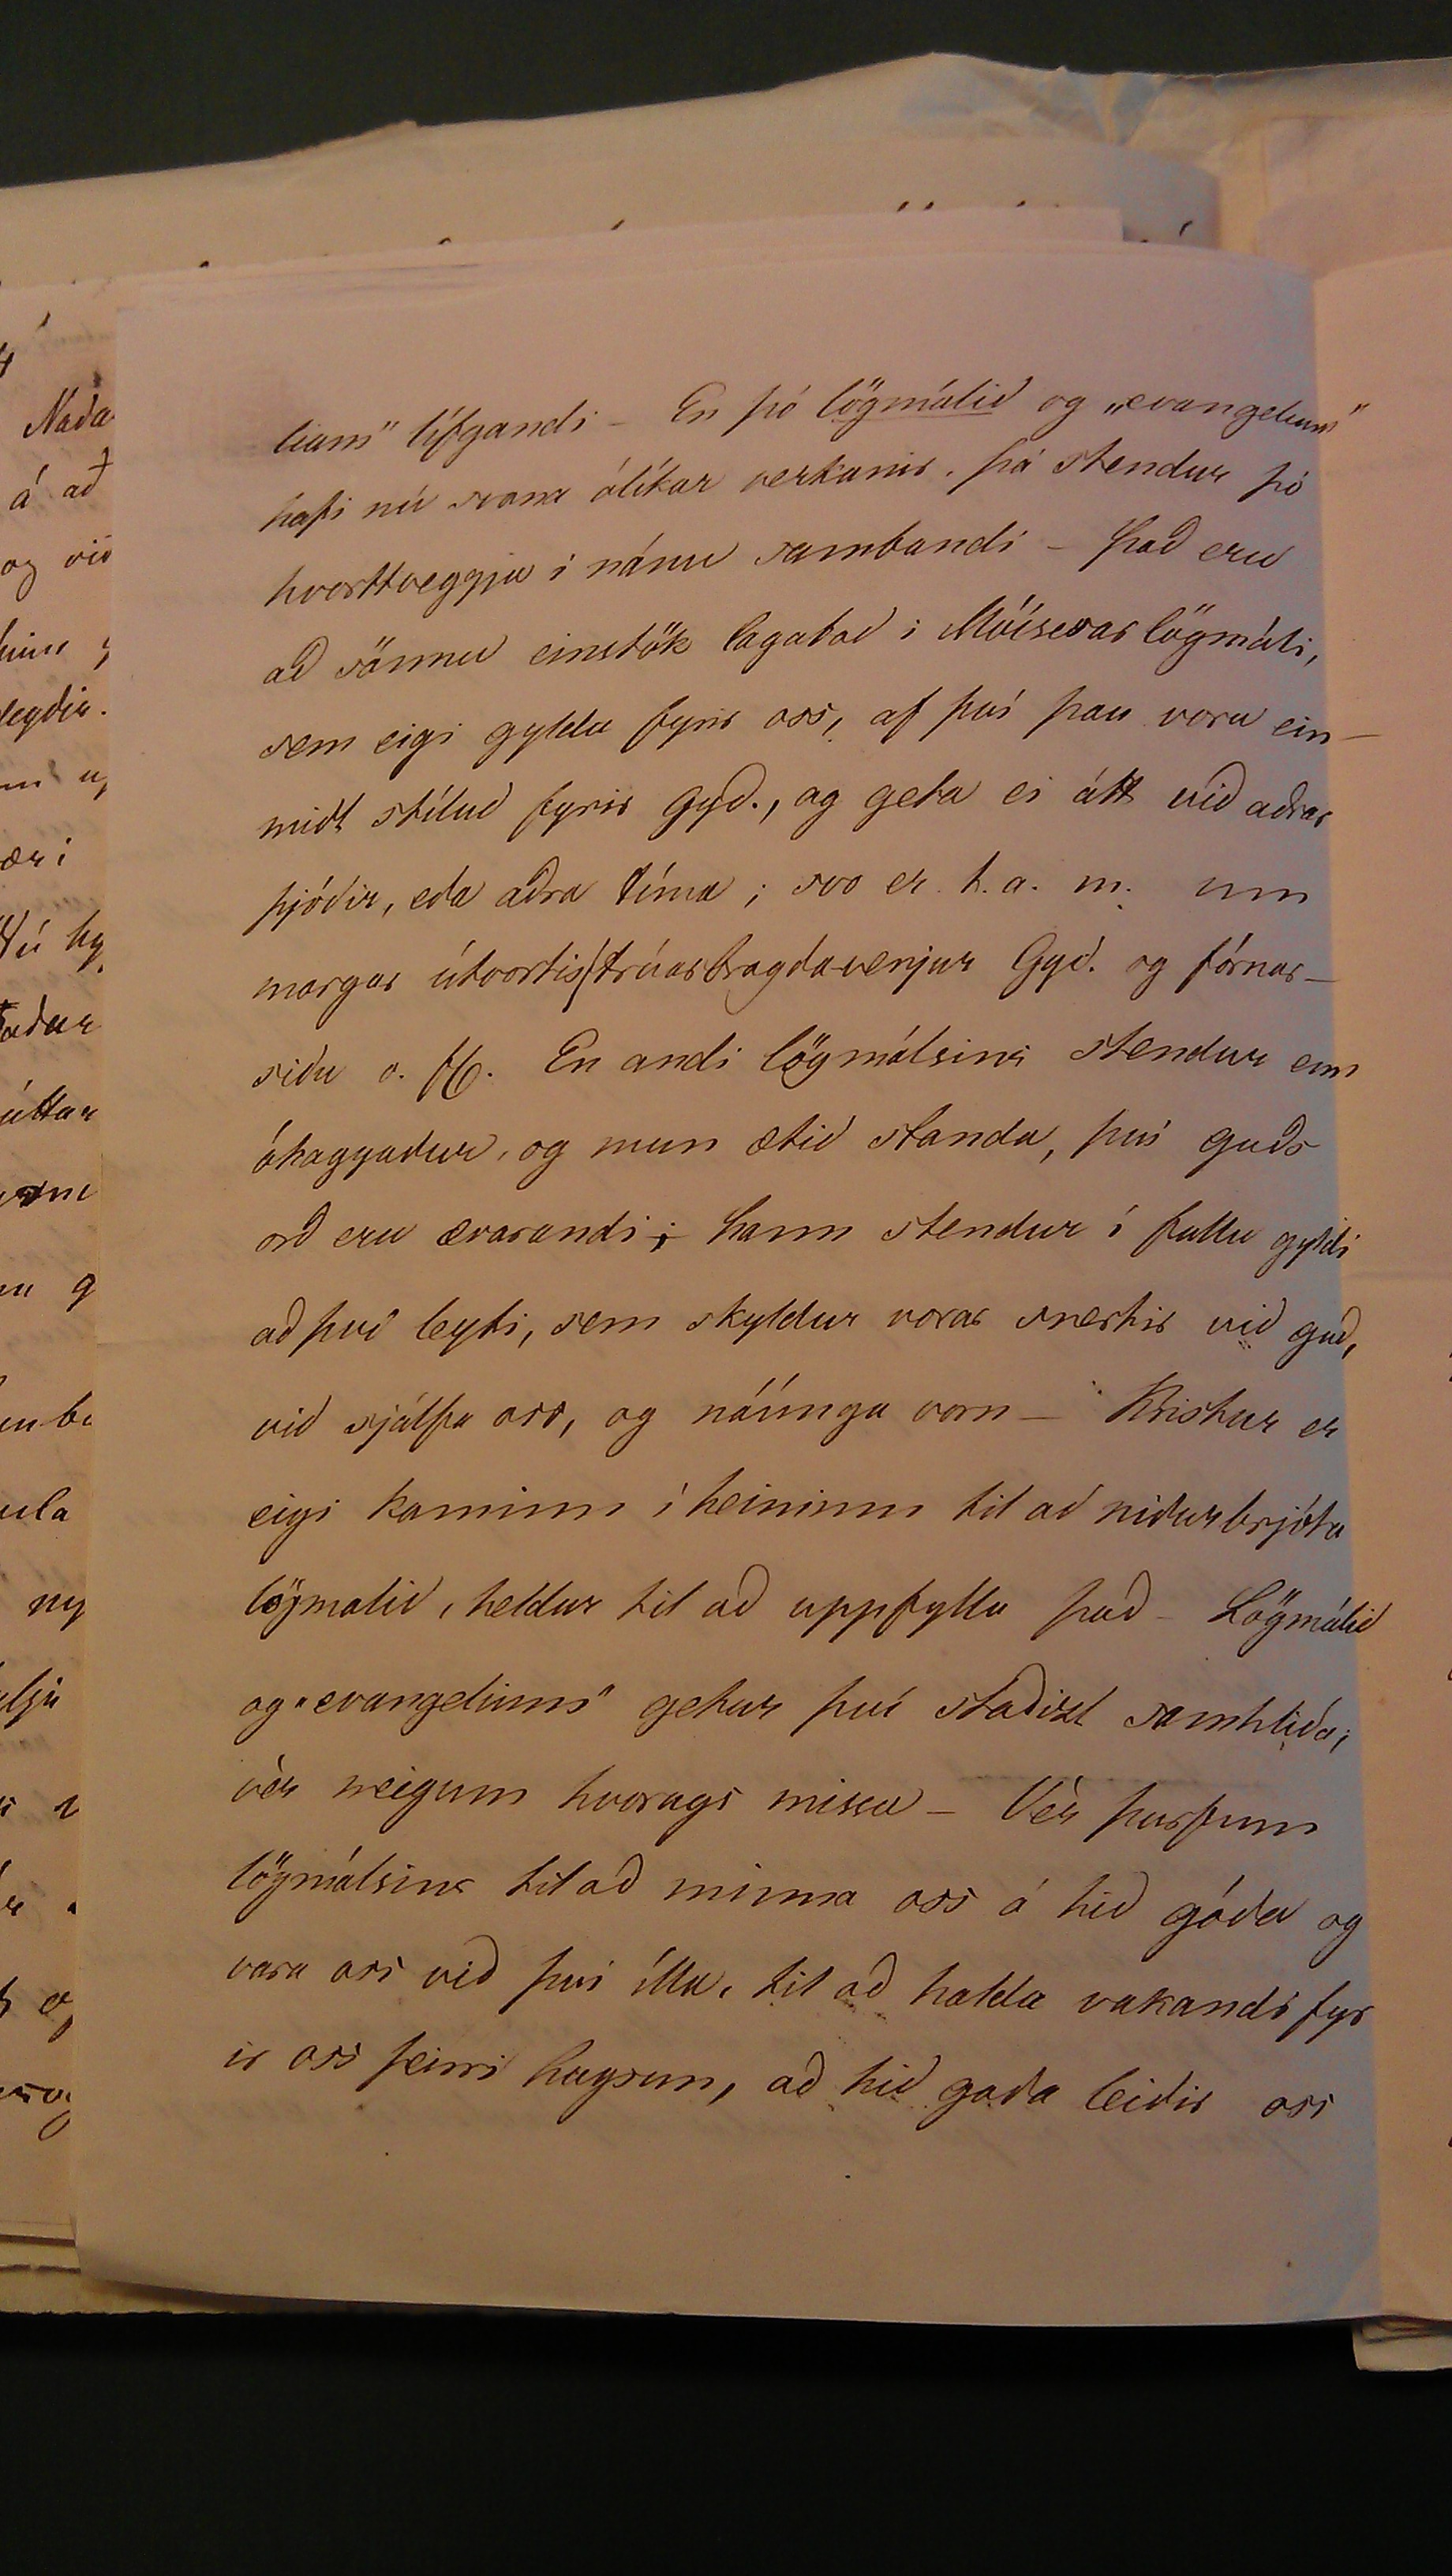 lium" lífgandi - En þó lögmálið og „evangelium"
hafi nú svona ólíkar verkanir, þá stendur þó
hvorttveggja i nánu sambandi - Það eru
að sönnu einstök lagaboð i Móísesar lögmáli,
sem eigi gylda fyrir oss, af því þau voru ein-
midt stíluð fyrir Gyð., og geta ei átt við aðrar
þjóðir, eða aðra tíma; svo er t. a. m. um
margar útvortis trúarbragda-venjur Gyð. og fórnar-
siðu o. fl. En andi lögmálsins stendur enn
óhaggaður, og mun ætið standa, þvi guðs
orð eru ævarandi; hann stendur i fullu gyldi
að því leyti, sem skyldur vorar snertir við guð,
við sjálfa oss, og náúnga vorn - Kristur er
eigi kominn i heiminn til að niðurbrjóta
lögmalið, heldur til að uppfylla það - Lögmálið
og "evangelium" getur því staðizt samhliða;
vèr meigum hvorugs missa - Vèr þurfum
lögmálsins til að minna oss á hið góða og
vara oss við því illa, til að halda vakandi fyr
ir oss þeirri hugsun, að hið goða leiðir oss
Naða
á að
og við